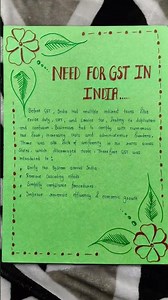 NEED FOR GST IN
INDIA....
Before GST, India had multiple indirect taxes like
excise duty, VAT, and service tax, leading to duplication
and confusion. Businesses had to comply with numerous
tax laws, increasing costs and administrative burdens.
There was also lack of uniformity in tax rates across
states, which discouraged trade. Therefore GST was
introduced to :
Unify the tax system across India.
Remove cascading effects
Simplify compliance procedures.
Increase economic efficiency & economic growth